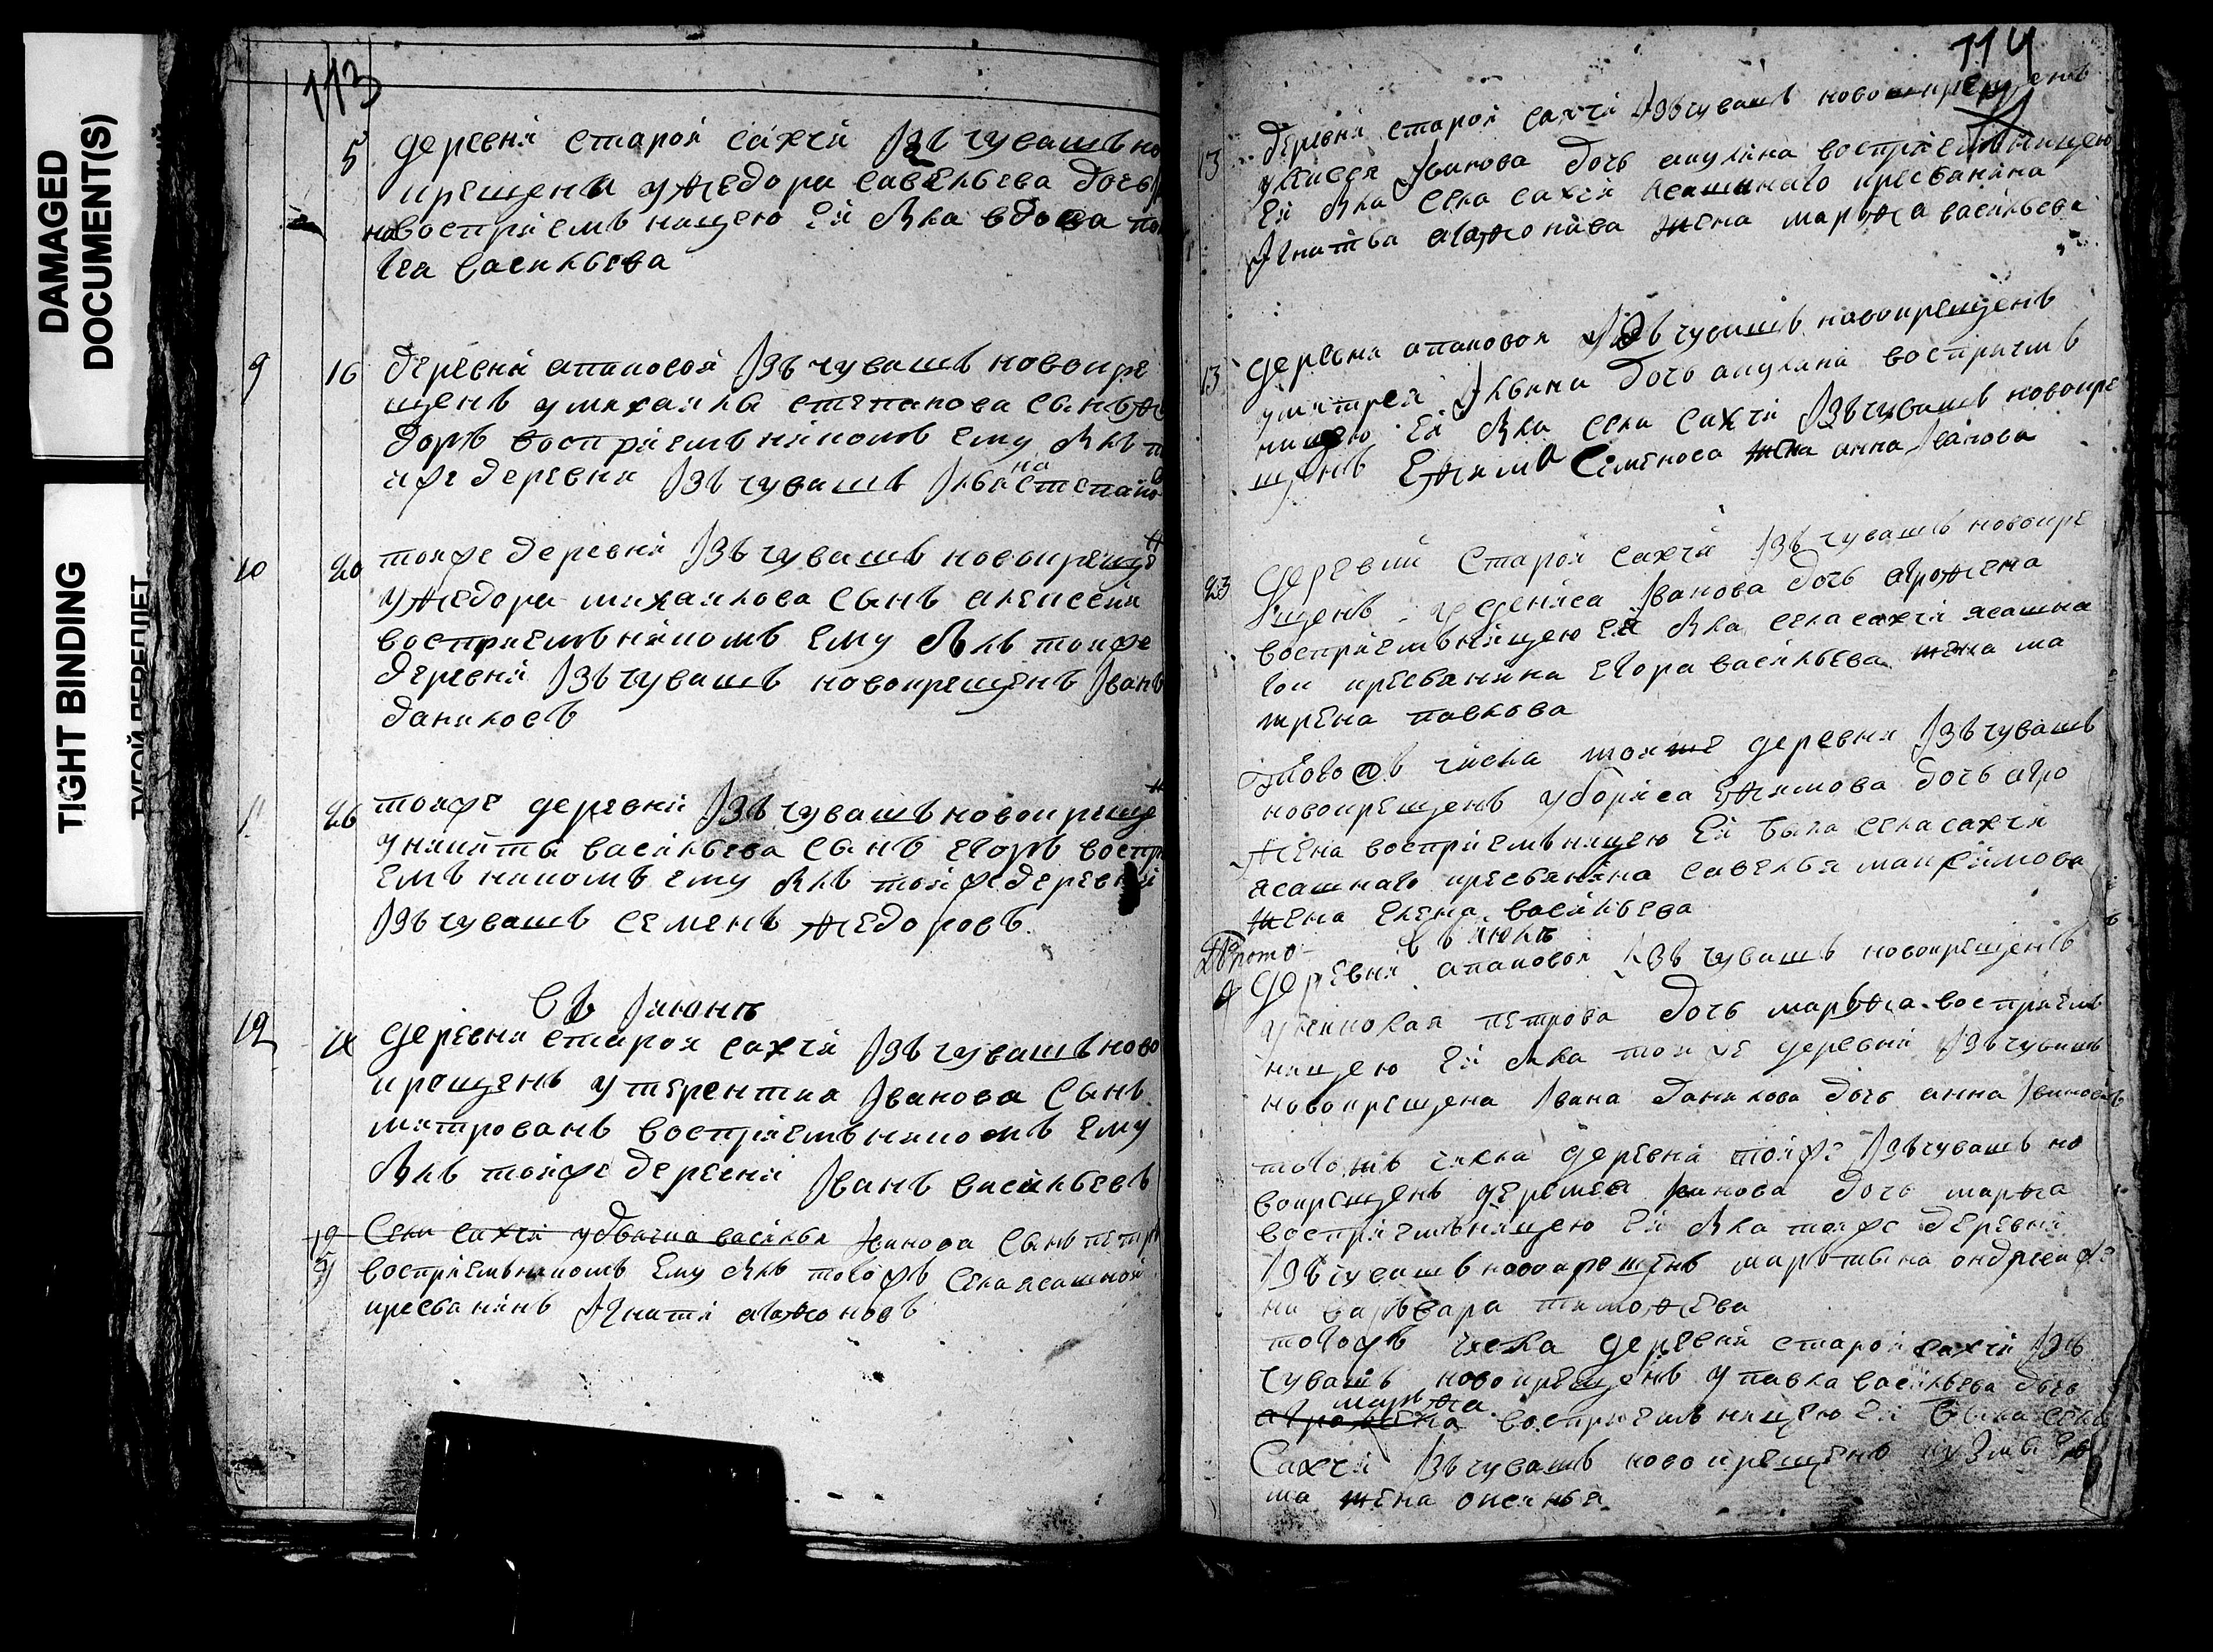 DAMAGED
DOCUMENT(S)
TIGHT BINDING
ТУГОЙ ПЕРЕПЛЕТ
113
5 деревни старой сахчи Iзъ чувашъ но
крещена у Федора савельева дочь
воспрiемъницею Ей была вдова
васильева
9 16 деревни апаковой Iзъ чувашъ новокре
щенъ у михайлы степанова сынъ Фе
доръ воспрiемъникомъ Ему былъ т
ойже деревни Iзъ чувашъ Iльина степано
10 20 тойже деревни Iзъ чувашъ новокреще
у Федора михайлова сынъ алексей
воспрiемъникомъ Ему былъ тойже
деревни Iзъ чувашъ новокрещенъ Iванъ
даниловъ
11 26 тойже деревни Iзъ чувашъ новокреще
у никиты васильева сынъ егоръ воспрi
емъникомъ ему былъ тойже деревни
Iзъ чувашъ семенъ Федоровъ
въ Iюнѣ
12 деревни старой сахчи Iзъ чувашъ ново
крещенъ у терентия Iванова сынъ
митрованъ воспрiемъникомъ Ему
былъ тойже деревни Iванъ васильевъ
Села сахчи у дьячка василья Iванова сынъ петръ
воспрiемъникомъ Ему былъ тогожъ села ясашной
кресьянинъ Iгнатi агаФоновъ
114
деревни старой сахчи Iзъ чувашъ новокрещенъ
13 Iванова дочь акулина воспрiемъницею
Ей была села сахчи ясашнаго кресьянина
Iгнатья агаФонова жена марФа васильева
деревни апаковой Iзъ чувашъ новокрещенъ
13 у митрея Iльина дочь акулина воспрiемъ
ницею Ей была села сахчи Iзъ чувашъ новокре
щенъ ЕФима Семенова жена анна Iванова
деревни старой сахчи Iзъ чувашъ новокре
23 щенъ у дениса Iванова дочь агроФена
воспрiемъницею Ей была села сахчи ясашна
гои кресьянина Егора васильева жена ма
трена павлова
того ж числа тойже деревни Iзъ чувашъ
новокрещенъ у бориса ЕФимова дочь агро
Фена воспрiемъницею Ей была села сахчи
ясашнаго кресьянина савелья максимова
жена Елена васильева
въ июлѣ
деревни апаковой Iзъ чувашъ новокрещенъ
у николая петрова дочь марФа воспрiемъ
ницею Ей была тойже деревни Iзъ чувашъ
новокрещена Iвана данилова дочь анна Iванова
того жъ числа деревни тойже Iзъ чувашъ но
вокрещенъ у еремея Iванова дочь марФа
воспрiемъницею Ей была тойже деревни
Iзъ чувашъ новокрещенъ мартына андреева же
на варвара тимоФева
тогожъ числа деревни старой сахчи Iзъ
чувашъ новокрещенъ у павла васильева дочь
марФа
агроФена воспрiемъницею Ей была села
Сахчи Iзъ чувашъ новокрещенъ кузмы
ма жена оксинья